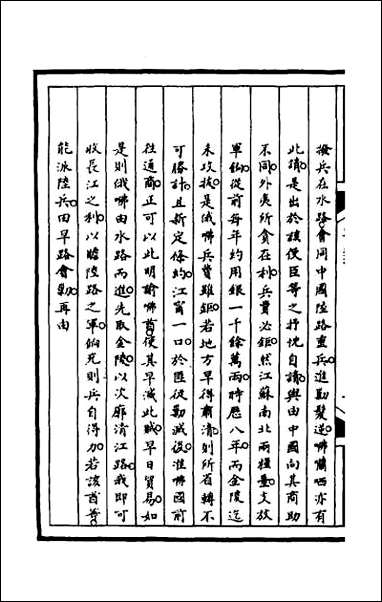 撥兵在水路。會同中國陸路重兵。進勦髮逆。㗏囒哂亦有
此請。是出於該使臣等之抒忱自請。與由中國向其商助
不同。外夷所貪在利。兵費必鉅。然江蘇南北兩糧臺。支放
軍餉。從前每年約用銀一千餘萬兩。時歷八年。而金陵迄
未攻拔。是俄㗏兵費雖鉅。若地方早得肅清。則所省轉不
可勝計。且新定條約。江甯一口。於匪徒勦滅後。准㗏國前
往通商。正可以此明諭㗏酋。使其早滅此賊。早日貿易。如
是則俄㗏由水路而進。先取金陵。以次廓清江路。我即可
收長江之利。以贍陸路之軍。餉充則兵自得力。若該酋等
能派陸兵。由早路會勦。再由